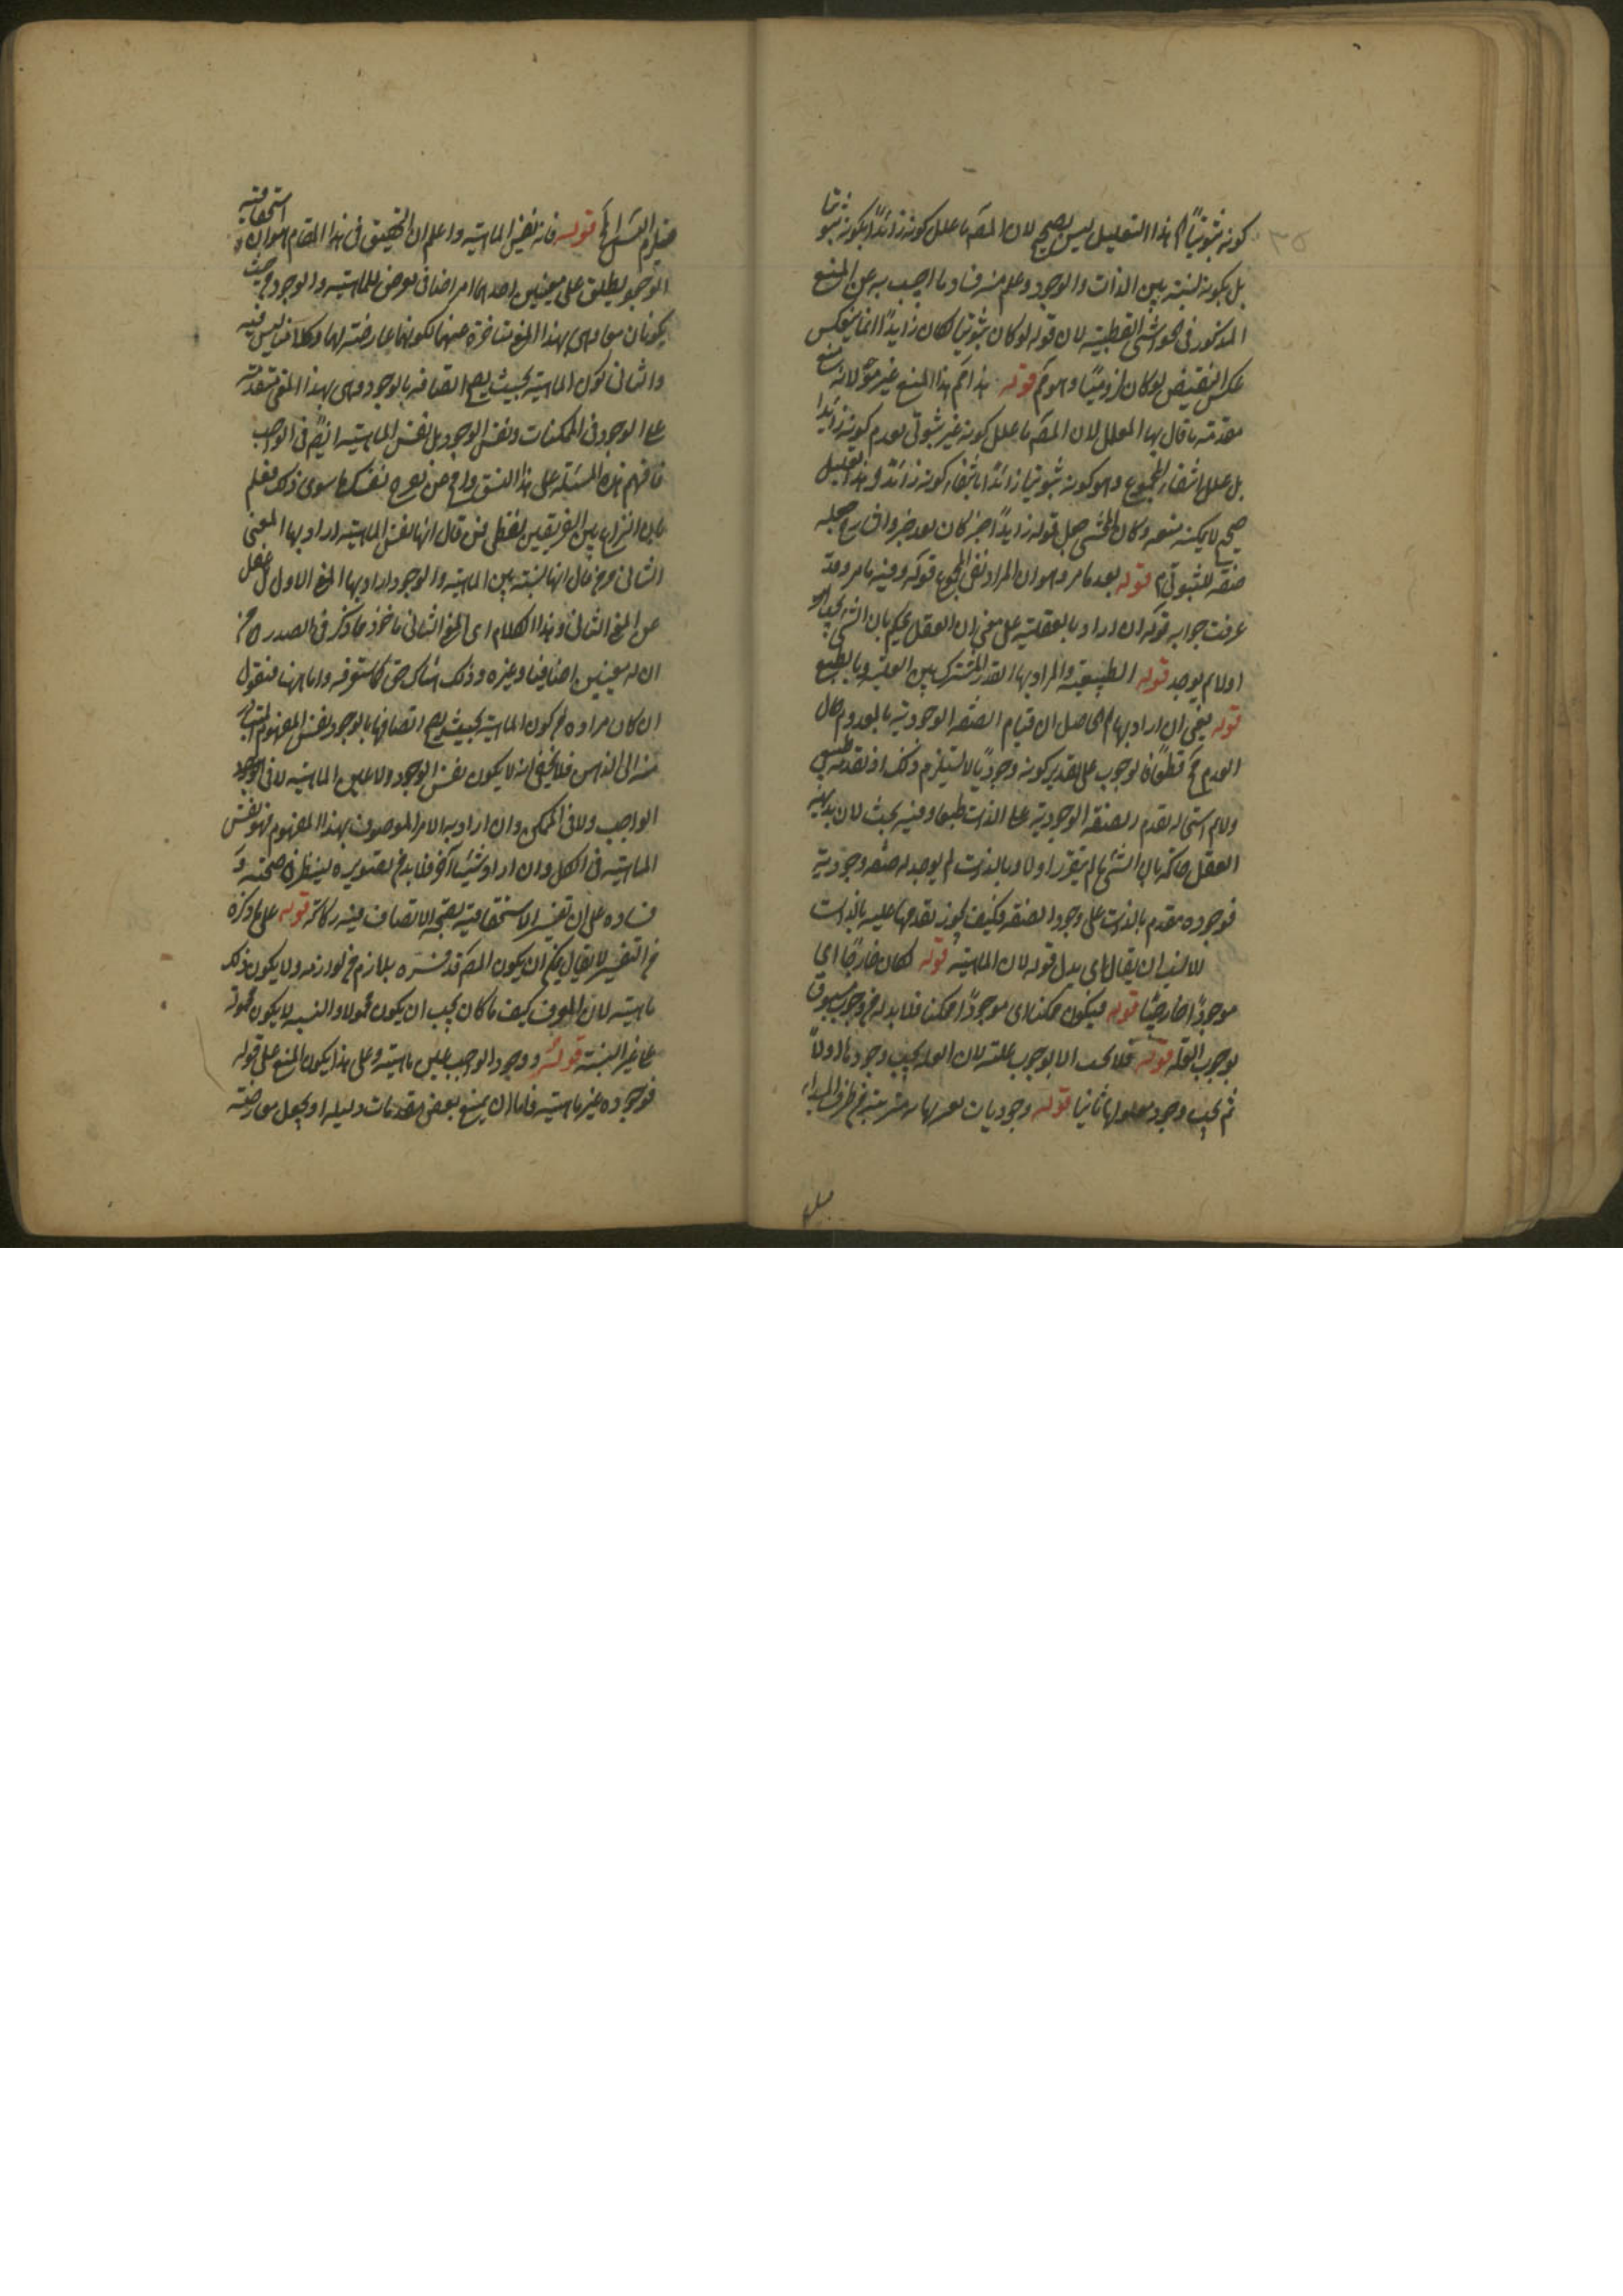 كونه ثبوتيا هذا التعليل ليس بصحيح لان المص ما علل كونه زائدا بكونه ثبوتيا
بل بكونه نسبة بين الذات والوجود وعلم منه فساد ما اجيب به عن المنع
المذكور في الحواشي القطبية لان قوله لو كان ثبوتيا لكان زايدا انما ينعكس
عكس النقيض لو كان لزوميا وهو مم قوله هذا هذا المنع غير موجه لانه منع
مقدمة ما قال بها المعلل لان المص ما علل كونه غير ثبوتي بعدم كونه زايدا
بل علل انتفاء المجموع وهو كونه ثبوتيا زائدا بانتفاء كونه زائدا وهذا تعليل
صحيح لا يمكنه منعه وكان المحشي حمل قوله زايدا خبر كان بعد خبر والشارح جعله
صفة لثبوتي قوله بعد ما مر وهو ان المراد نفي المجموع قوله وفيه ما مر وقد
عرفت جوابه قوله ان اراد بالعقلية على معنى ان العقل يحكم بان الشيء
اولا لم يوجد قوله الطبيعية والمراد بها القدر المشترك بين العلية وبالطبع
قوله يعني ان اراد بها الحاصل ان قيام الصفة الوجودية بالمعدوم حال
العدم مح قطعا فالوجوب على تقدير كونه وجوديا لا يستلزم ذلك اذ تقدمه طبيعي
ولا م استحالة تقدم الصفة الوجودية على الذات طبعا وفيه بحث لان بديهة
العقل حاكمة بان الشيء ما لم يتقرر اولا وبالذات لم يوجد له صفة وجودية
فوجوده مقدم بالذات على وجود الصفة فكيف يجوز تقدمها عليه بالذات
لا ان يقال اي بدل قوله لان الماهية قوله لكان خارجا اي
موجودا خارجيا قوله فيكون ممكنا اي موجودا ممكنا فلا بد له من وجوب مسبوق
بوجوب العلة قوله فلا يجب الا بوجوب علته لان العلة يجب وجودها اولا
ثم يجب وجود معلولها ثانيا قوله وجوديات من طرف المبداء
فيلزم التسلسل قوله فانه نفس الماهية واعلم ان التحقيق في هذا المقام هو ان استحقاقية
الوجود يطلق على معنيين احدهما امر اضافي يعرض للماهية والوجود من حيث
يكونان معا وهي بهذا المعنى متاخرة عنهما لكونها عارضة لهما وكلامنا ليس فيه
والثاني كون الماهية بحيث يصح اتصافه بالوجود وهي بهذا المعنى متقدمة
على الوجود في الممكنات ونفس الوجود بل نفس الماهية ايضا في الواجب
فافهم هذه المسئلة على هذا النسق سوى ذلك تعلم
بان النزاع بين الفريقين لفظي فمن قال انها نفس الماهية اراد بها المعنى
الثاني ومن قال انها نسبة بين الماهية والوجود اراد بها المعنى الاول غفل
عن المعنى الثاني وهذا الكلام اي المعنى الثاني ماخوذ مما ذكر في الصدر من
ان له معنيين اضافيا وغيره وذلك هناك حتى واما ههنا فنقول
ان كان مراده من كون الماهية بحيث يصح اتصافها بالوجود نفس المفهوم المتبادر
منه الى الذهن فلا يخفى انه لا يكون نفس الوجود ولا عين الماهية لا في
الواجب ولا في الممكن وان اراد به الامر الموصوف بهذا المفهوم فهو نفس
الماهية في الكل وان اراد شيئا آخر فلا بد من تصويره لينظر في صحته و
فساده على ان تفسير الاستحقاقية بصحة الاتصاف فيه ركاكة قوله على ما ذكره
من التفسير لا يقال يمكن ان يكون المص قد فسره بلازم من لوازمه ولا يكون ذلك
ماهيته لان المعرف كيف ما كان يجب ان يكون محمولا والنسبة لا يكون محمولة
على غير النسبة قوله ووجود الواجب عين ماهيته وعلى هذا يكون المنع على قوله
فوجوده غير ماهيته فاما ان يمنع بعض مقدمات دليله او يجعل معارضة